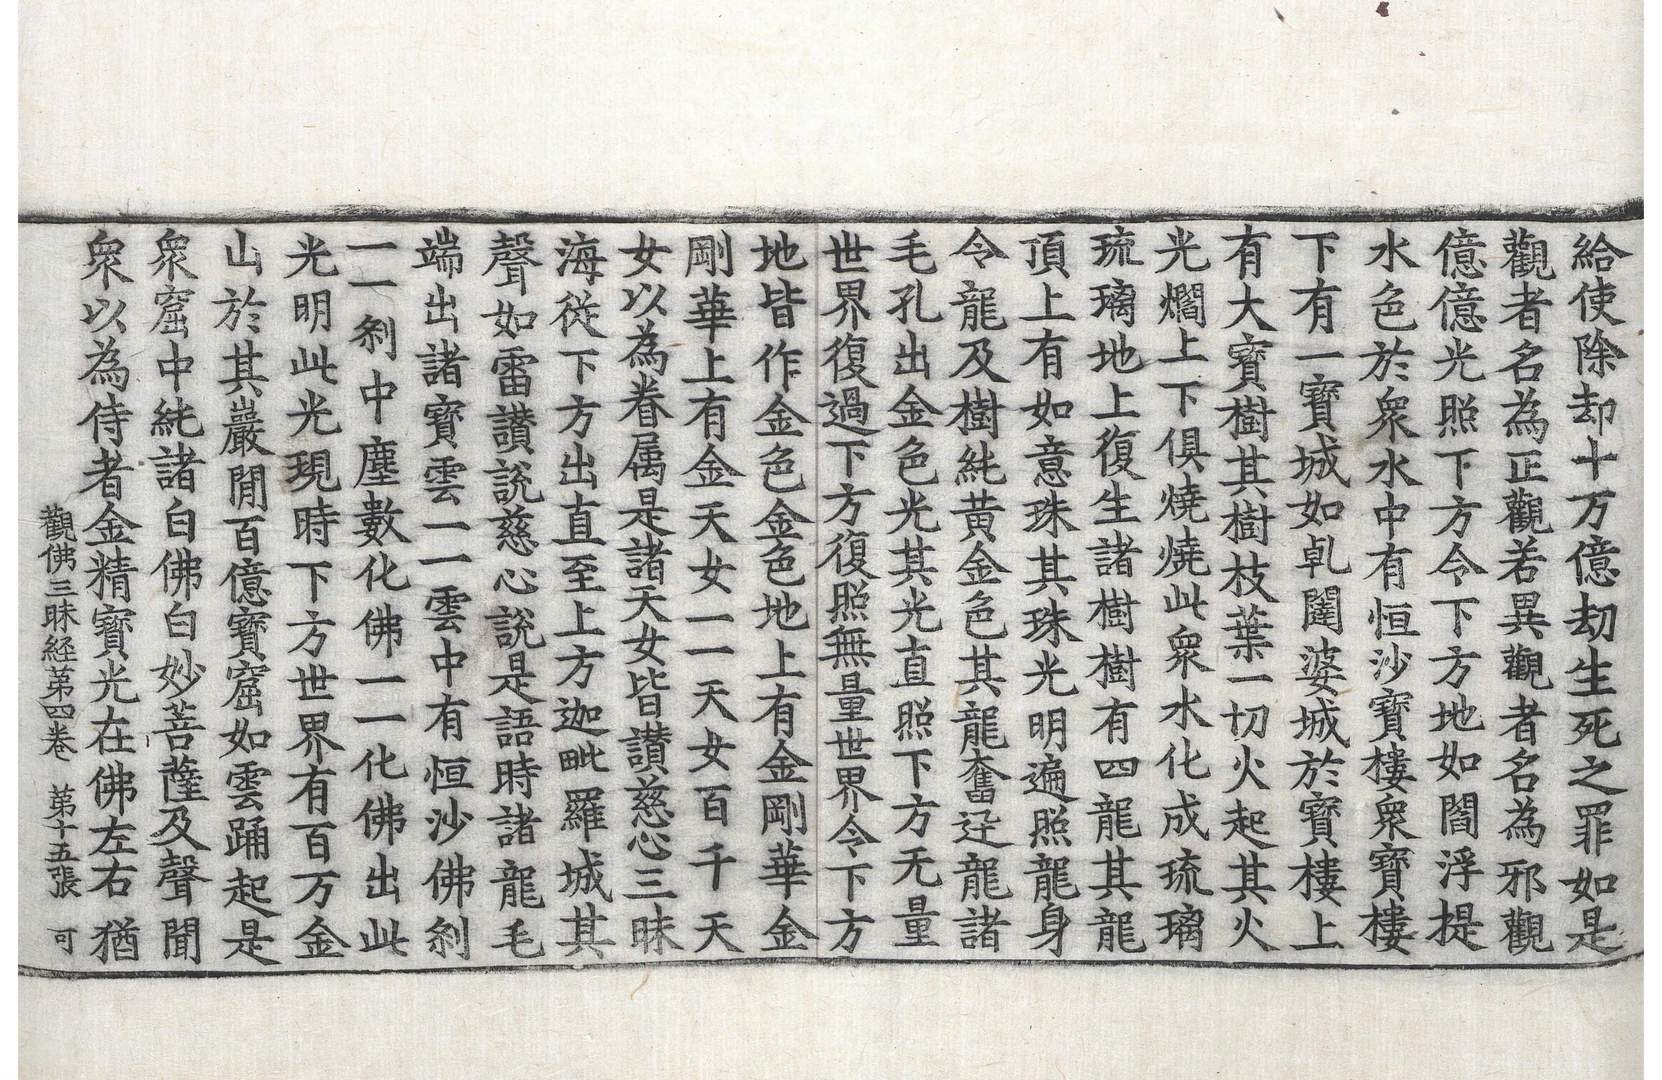 給使除却十万億劫生死之罪如是
觀者名為正觀若異觀者名為邪觀
億億光照下方令下方地如閻浮提
水色於衆水中有恒沙寶樓衆寶樓
下有一寶城如乹闥婆城於寶樓上
有大寶樹其樹枝葉一切火起其火
光爓上下俱燒燒此衆水化成琉璃
琉璃地上復生諸樹樹有四龍其龍
頂上有如意珠其珠光明遍照龍身
令龍及樹純黄金色其龍奮迅龍諸
毛孔出金色光其光直照下方无量
世界復過下方復照無量世界令下方
地皆作金色金色地上有金剛華金
剛華上有金天女一一天女百千天
女以為眷属是諸天女皆讃慈心三昧
海從下方出直至上方迦毗羅城其
聲如雷讃說慈心說是語時諸龍毛
端出諸寶雲一一雲中有恒沙佛刹
一一刹中塵數化佛一一化佛出此
光明此光現時下方世界有百万金
山於其巖閒百億寶窟如雲踊起是
衆窟中純諸白佛白妙菩薩及聲聞
衆以為侍者金精寶光在佛左右猶
觀佛三昧経第四卷 第十五張 可